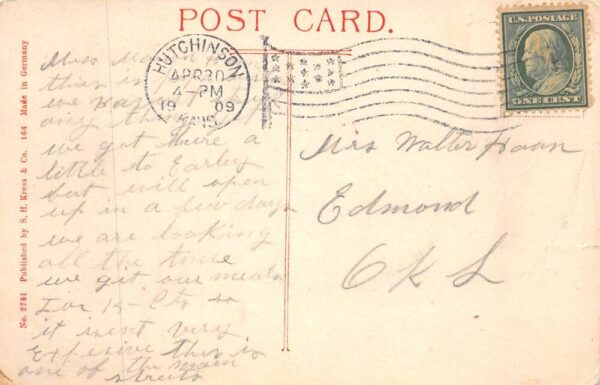 POST CARD.
HUTCHINSON
APR 30
4-PM
1909
KANS.
U.S. POSTAGE
ONE CENT
No. 2781 Published by S. H. Kress & Co. 164 Made in Germany
Miss
this is
we
any
we got here a
little to Earley
but will open
up in a few days
we are looking
all the time
we get our meals
For 15-Cts so
it isent very
Expesive this is
one of the main
streets
Mrs Walter
Edmond
Okl